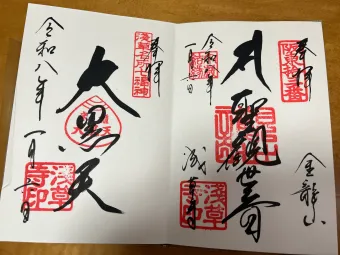 奉拝
聖観世音
金龍山
浅草寺
令和八年
一月一日
浅草寺印
奉拝
浅草名所七福神
大黒天
令和八年
一月一日
浅草寺印